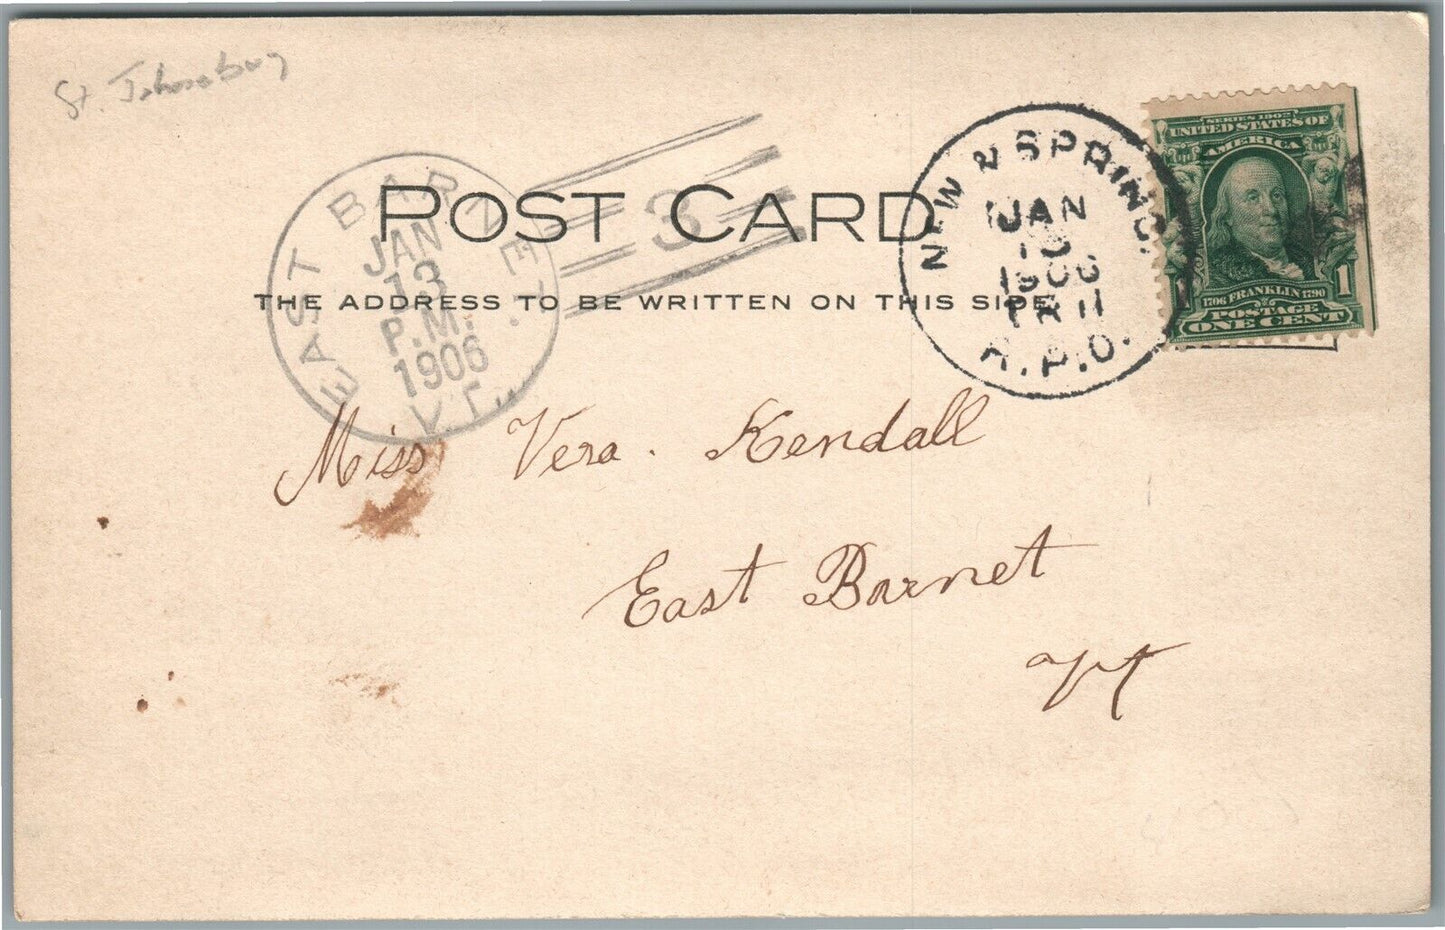 St. Johnsbury
EAST BARNET
JAN
13
P.M.
1906
VT.
3
POST CARD
THE ADDRESS TO BE WRITTEN ON THIS SIDE
NEW & SPRING.
JAN
13
1906
TR 11
R.P.O.
SERIES 1902
UNITED STATES OF
AMERICA
1706 FRANKLIN 1790
1
POSTAGE
ONE CENT
Miss Vera. Kendall
East Barnet
Vt